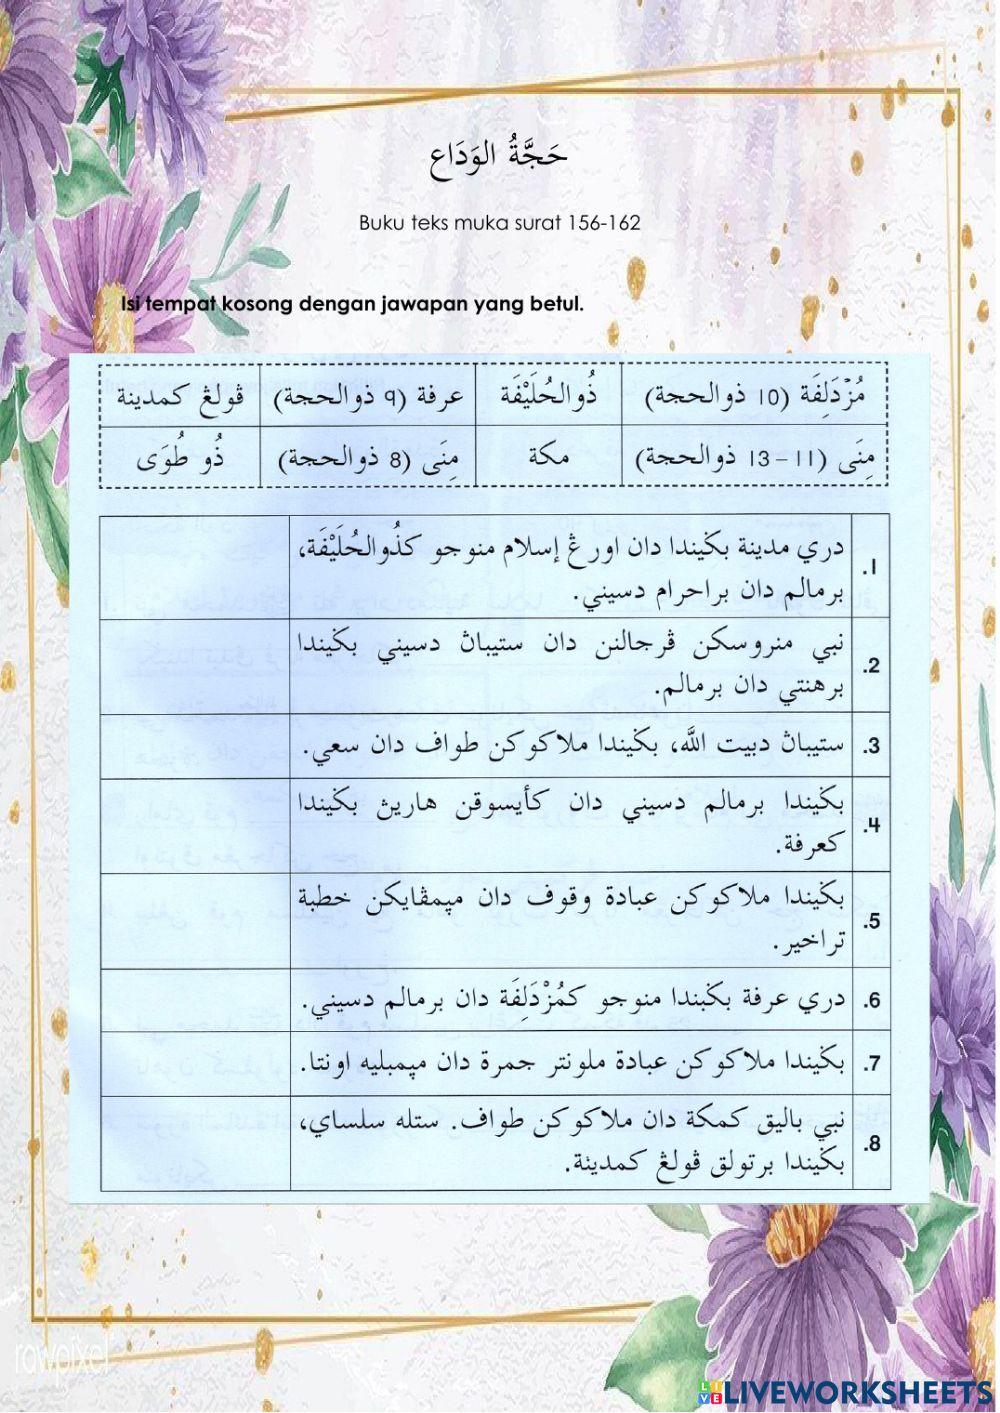 حَجَّةُ الوَدَاع
Buku teks muka surat 156-162
Isi tempat kosong dengan jawapan yang betul.
مُزْدَلِفَة (10 ذوالحجة) ذُوالحُلَيْفَة عرفة (9 ذوالحجة) ڤولڠ كمدينة
مِنَى (11–13 ذوالحجة) مكة مِنَى (8 ذوالحجة) ذُو طُوَى
1. دري مدينة بݢيندا دان اورڠ إسلام منوجو كذُوالحُلَيْفَة،
برمالم دان براحرام دسيني.
2. نبي منروسكن ڤرجالنن دان ستيباڽ دسيني بݢيندا
برهنتي دان برمالم.
3. ستيباڽ دبيت الله، بݢيندا ملاكوكن طواف دان سعي.
4. بݢيندا برمالم دسيني دان كأيسوقن هاريڽ بݢيندا
كعرفة.
5. بݢيندا ملاكوكن عبادة وقوف دان مڽمڤايكن خطبة
تراخير.
6. دري عرفة بݢيندا منوجو كمُزْدَلِفَة دان برمالم دسيني.
7. بݢيندا ملاكوكن عبادة ملونتر جمرة دان مڽمبليه اونتا.
8. نبي باليق كمكة دان ملاكوكن طواف. ستله سلساي،
بݢيندا برتولق ڤولڠ كمدينة.
rawpixel
LIVEWORKSHEETS